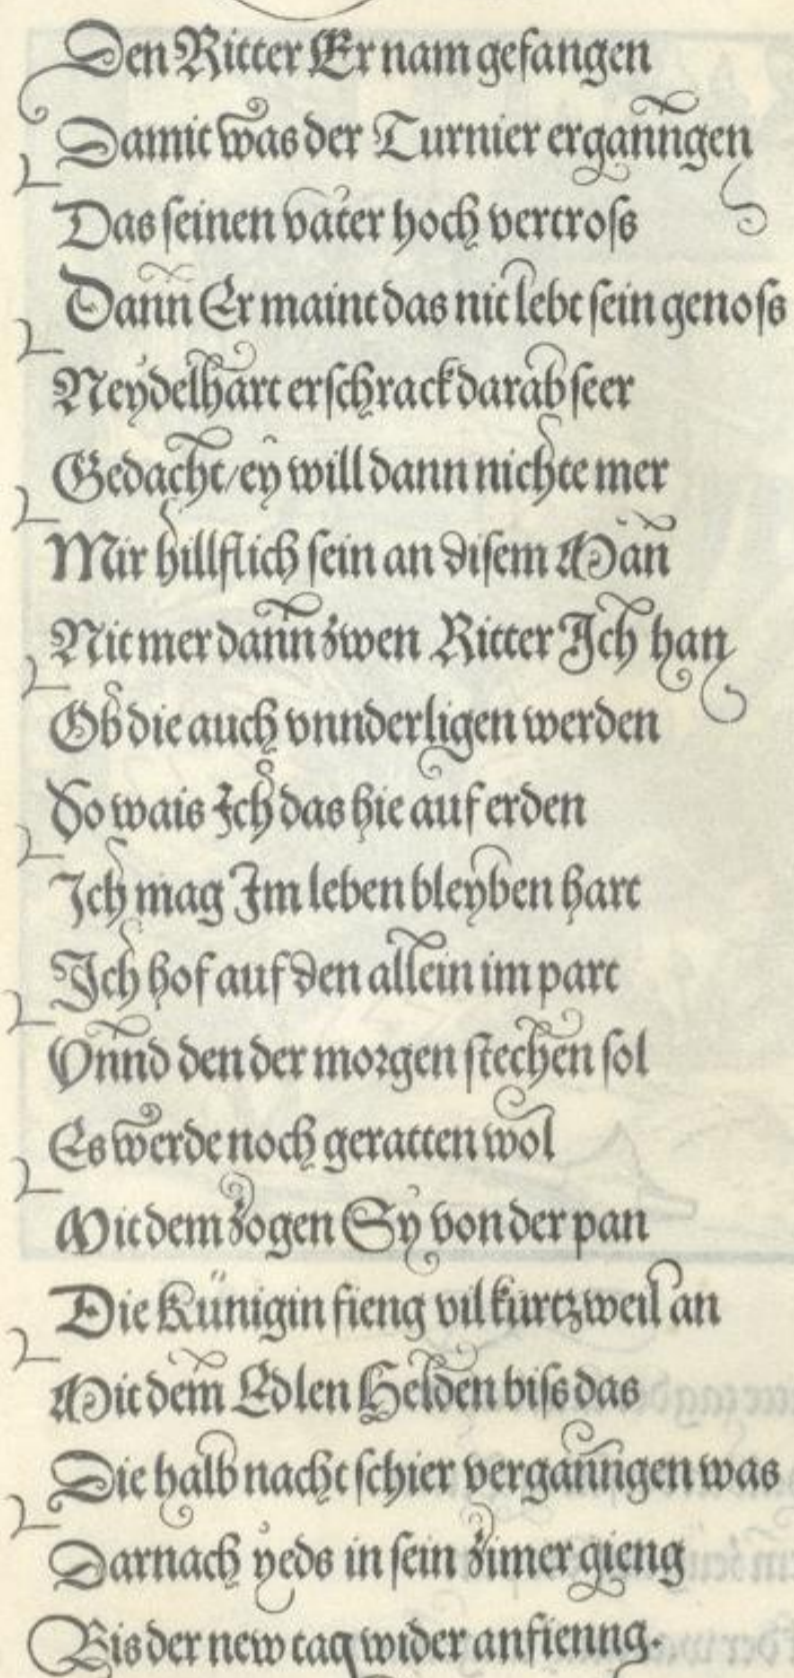 Den Ritter Er nam gefangen
Damit was der Turnier erganngen
Das seinen vater hoch vertross
Dann Er maint das nit lebt sein genoss
Neydelhart erschrack darab seer
Gedacht/ ey will dann nichte mer
Mir hillflich sein an disem Man
Nit mer dann zwen Ritter Ich han
Ob die auch vnnderligen werden
So wais Ich das hie auf erden
Ich mag Im leben bleyben hart
Ich hof auf den allein im part
Vnnd den der morgen stechen sol
Es werde noch geratten wol
Mit dem zogen Sy von der pan
Die Künigin fieng vil kurtzweil an
Mit dem Edlen Helden biss das
Die halb nacht schier verganngen was
Darnach yeds in sein zimer gieng
Bis der new tag wider anfienng.